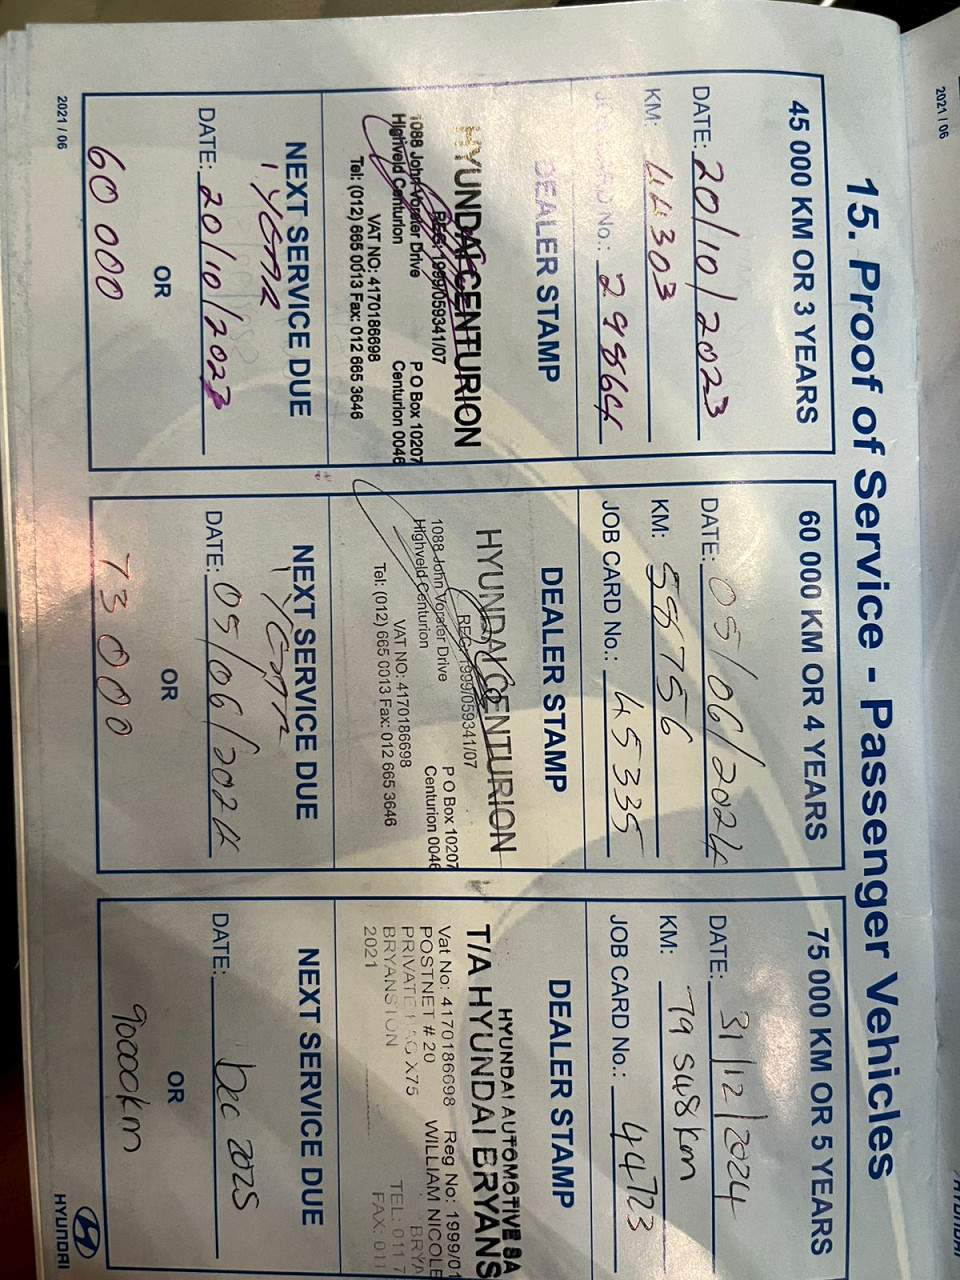 15. Proof of Service - Passenger Vehicles
45 000 KM OR 3 YEARS
DATE: 20/10/2023
KM: 44303
JOB CARD No.: 29864
DEALER STAMP
HYUNDAI CENTURION
REG: 1999/059341/07
1088 John Vorster Drive P O Box 10207
Highveld Centurion Centurion 0046
VAT NO: 4170186698
Tel: (012) 665 0013 Fax: 012 665 3646
NEXT SERVICE DUE
1 YEAR
DATE: 20/10/2023
OR
60 000
60 000 KM OR 4 YEARS
DATE: 05/06/2024
KM: 58756
JOB CARD No.: 45335
DEALER STAMP
HYUNDAI CENTURION
REG: 1999/059341/07
1088 John Vorster Drive P O Box 10207
Highveld Centurion Centurion 0046
VAT NO: 4170186698
Tel: (012) 665 0013 Fax: 012 665 3646
NEXT SERVICE DUE
1 YEAR
DATE: 05/06/2024
OR
73 000
75 000 KM OR 5 YEARS
DATE: 31/12/2024
KM: 79 548km
JOB CARD No.: 44723
DEALER STAMP
HYUNDAI AUTOMOTIVE SA
T/A HYUNDAI BRYANS
Vat No: 4170186698 Reg No: 1999/01
POSTNET # 20 WILLIAM NICOL
PRIVATE BAG X75 BRYA
BRYANSTON TEL: 011 7
2021 FAX: 011
NEXT SERVICE DUE
DATE: Dec 2025
OR
90000km
2021 / 06
HYUNDAI
2021 / 06
HYUNDAI